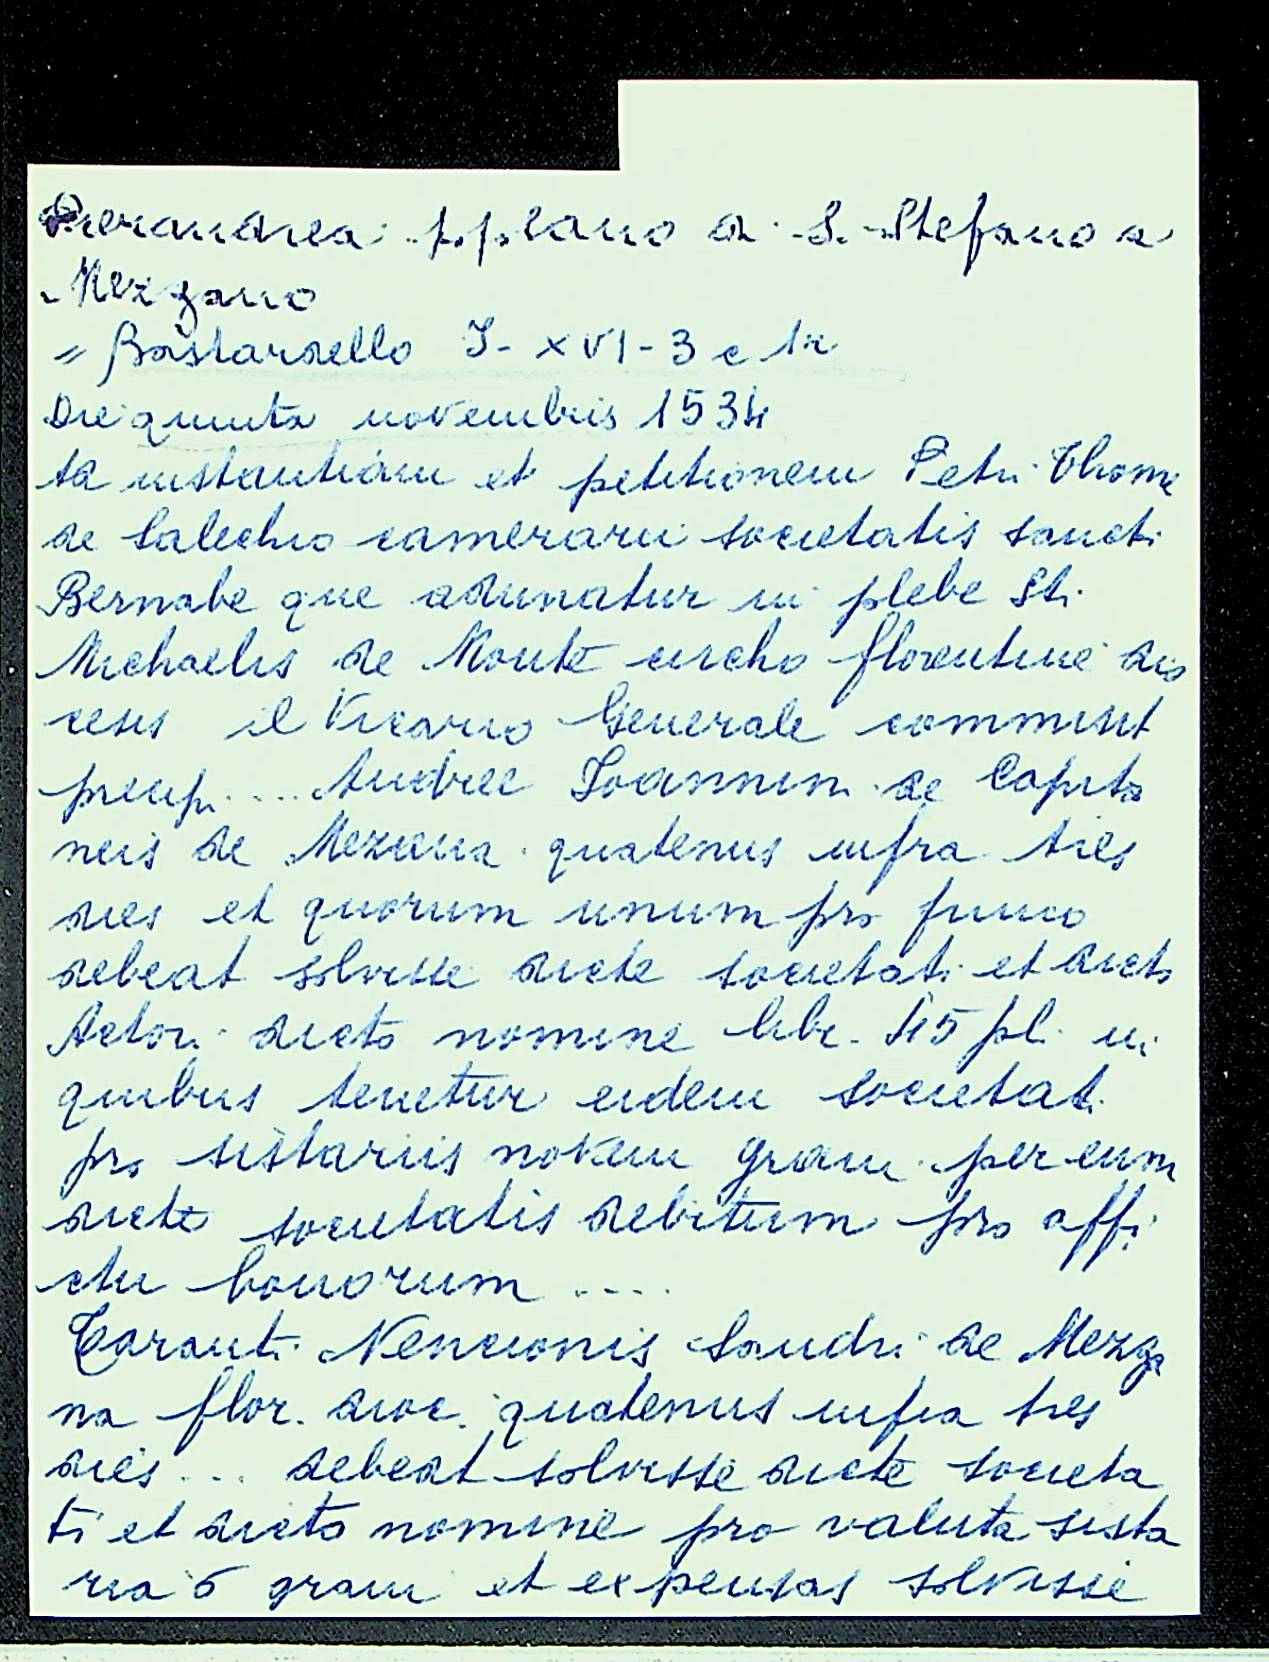 Pierandrea p.p. Lano di S. Stefano a
Mezzano
= Bastardello I- XVI - 3 c 1r
Die quinta novembris 1534
ta instantiam et petitionem Petri Thome
de Salechio camerarii societatis sancti
Bernabe que adunatur in plebe Sti.
Michaelis de Monte circho florentine dio
cesis il Vicario Generale commisit
precip.... Andree Joannini de Capita
neis de Mezana quatenus infra tres
dies et quorum unum pro primo
debeat solvisse dicte societati et dicto
Actori dicto nomine libr. 45 pl. in
quibus tenetur eidem societati
pro sistariis novem grani per eum
dicte societatis debitum pro affi
ctu bonorum ....
Taranti Nencionis Sandri de Mezza
na flor. dioc. quatenus infra tres
dies ... debeat solvisse dicte societa
ti et dicto nomine pro valuta sista
ria 6 grani et expensas solvisse